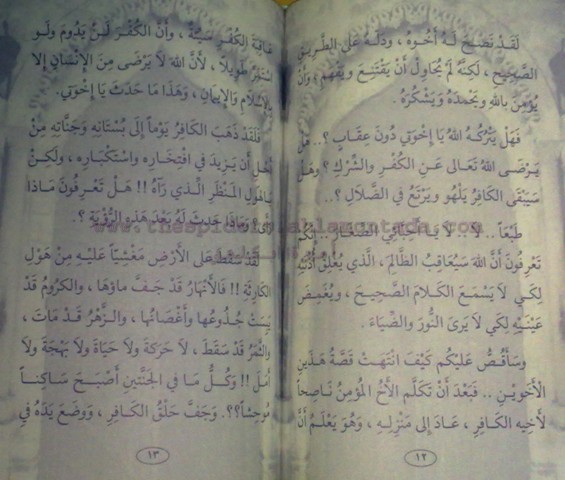 لَقَدْ نَصَحَ لَهُ أَخُوهُ ، وَدَلَّهُ عَلَى الطَّرِيقِ
الصَّحِيحِ ، لَكِنَّهُ لَمْ يُحَاوِلْ أَنْ يَقْتَنِعَ وَيَفْهَمَ ، وَأَنْ
يُؤْمِنَ بِاللهِ وَيَحْمَدَهُ وَيَشْكُرَهُ .
فَهَلْ يَتْرُكُهُ اللهُ يَا إِخْوَتِي دُونَ عِقَابٍ ؟ .. هَلْ
يَرْضَى اللهُ تَعَالَى عَنِ الْكُفْرِ وَالشِّرْكِ ؟ وَهَلْ
سَيَبْقَى الْكَافِرُ يَلْهُو وَيَرْتَعُ فِي الضَّلَالِ ؟ ..
طَبْعاً .. لَا .. لَا يَا أَحِبَّائِي الصِّغَارَ .. إِنَّكُمْ
تَعْرِفُونَ أَنَّ اللهَ سَيُعَاقِبُ الظَّالِمَ ، الَّذِي يُغْلِقُ أُذُنَيْهِ
لِكَي لَا يَسْمَعَ الْكَلَامَ الصَّحِيحَ ، وَيُغْمِضُ
عَيْنَيْهِ لِكَي لَا يَرَى النُّورَ وَالضِّيَاءَ .
وَسَأَقُصُّ عَلَيْكُم كَيْفَ انْتَهَتْ قِصَّةُ هَذَيْنِ
الْأَخَوَيْنِ .. فَبَعْدَ أَنْ تَكَلَّمَ الْأَخُ الْمُؤْمِنُ نَاصِحاً
لِأَخِيهِ الْكَافِرِ ، عَادَ إِلَى مَنْزِلِهِ ، وَهُوَ يَعْلَمُ أَنَّ
١٢
عَاقِبَةَ الْكُفْرِ سَيِّئَةٌ ، وَأَنَّ الْكُفْرَ لَنْ يَدُومَ وَلَو
اسْتَمَرَّ طَوِيلاً ، لِأَنَّ اللهَ لَا يَرْضَى مِنَ الْإِنْسَانِ إِلَّا
بِالْإِسْلَامِ وَالْإِيمَانِ ، وَهَذَا مَا حَدَثَ يَا إِخْوَتِي .
فَلَقَدْ ذَهَبَ الْكَافِرُ يَوْماً إِلَى بُسْتَانِهِ وَجَنَّاتِهِ مِنْ
أَجْلِ أَنْ يَزِيدَ فِي افْتِخَارِهِ وَاسْتِكْبَارِهِ ، وَلَكِنْ
يَا لَهَوْلِ الْمَنْظَرِ الَّذِي رَآهُ !! هَلْ تَعْرِفُونَ مَاذَا
رَأَى ؟ وَمَاذَا حَدَثَ لَهُ بَعْدَ هَذِهِ الرُّؤْيَةِ ؟ .
لَقَدْ سَقَطَ عَلَى الْأَرْضِ مَغْشِيّاً عَلَيْهِ مِنْ هَوْلِ
الْكَارِثَةِ !! فَالْأَنْهَارُ قَدْ جَفَّ مَاؤُهَا ، وَالْكُرُومُ قَدْ
يَبِسَتْ جُذُوعُهَا وَأَغْصَانُهَا ، وَالزَّهْرُ قَدْ مَاتَ ،
وَالثَّمَرُ قَدْ سَقَطَ ، لَا حَرَكَةَ وَلَا حَيَاةَ وَلَا بَهْجَةَ وَلَا
أَمَلَ !! وَكُلُّ مَا فِي الْجَنَّتَيْنِ أَصْبَحَ سَاكِناً
مُوحِشاً؟؟. وَجَفَّ حَلْقُ الْكَافِرِ ، وَوَضَعَ يَدَهُ فِي
١٣